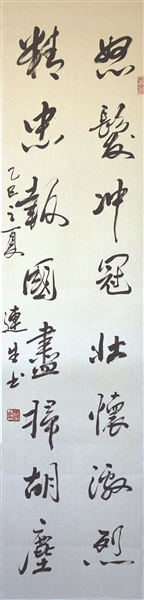 怒髮冲冠壯懷激烈
精忠報國盡掃胡塵
乙巳之夏
連生書